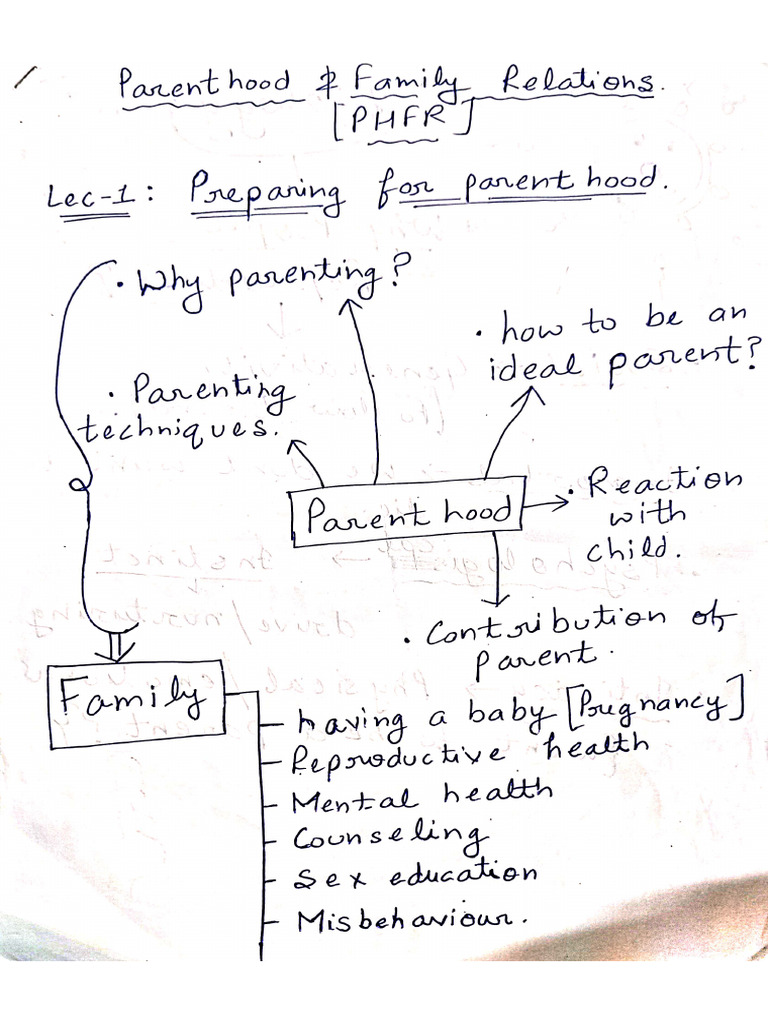 Parenthood & Family Relations.
[PHFR]
Lec-1: Preparing for parenthood.
• Why parenting?
• how to be an
ideal parent?
• Parenting
techniques.
Parenthood
• Reaction
with
child.
• Contribution of
parent.
Family
- having a baby [Pregnancy]
- Reproductive health
- Mental health
- Counseling
- Sex education
- Misbehaviour.